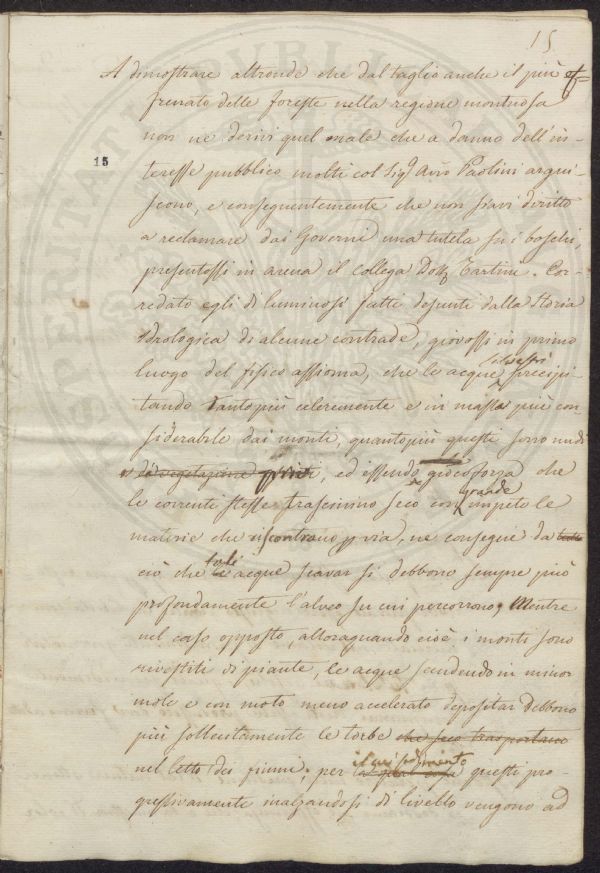 15
A dimostrare altronde che dal taglio anche il più ef-
frenato delle foreste nella regione montuosa
non ne derivi quel male che a danno dell'in-
15
teresse pubblico molti col Sigr Avvo Paolini argui-
scono, e conseguentemente che non siavi diritto
a reclamare dai Governi una tutela su i boschi,
presentossi in arena il collega Dottr Tartini. Cor-
redato egli di luminosi fatti desunti dalla storia
idrologica di alcune contrade, giovossi in primo
silvestri
luogo del fisico assioma, che le acque precipi-
tando tanto più celeremente e in massa più con-
siderabile dai monti, quanto più questi sono nudi
di vegetazione, ed essendo giocoforza che
grande
le correnti stesse trascinino seco con impeto le
materie che riscontrano p via, ne consegue da
tali
ciò che le acque scavar si debbono sempre più
profondamente l'alveo su cui percorrono, Mentre
nel caso opposto, alloraquando cioè i monti sono
rivestiti di piante, le acque scendendo in minor
mole e con moto meno accelerato depositar debbono
più sollecitamente le torbe che seco trasportano
il cui sedimento
nel letto dei fiumi. per questi pro-
gressivamente inalzandosi di livello vengono ad